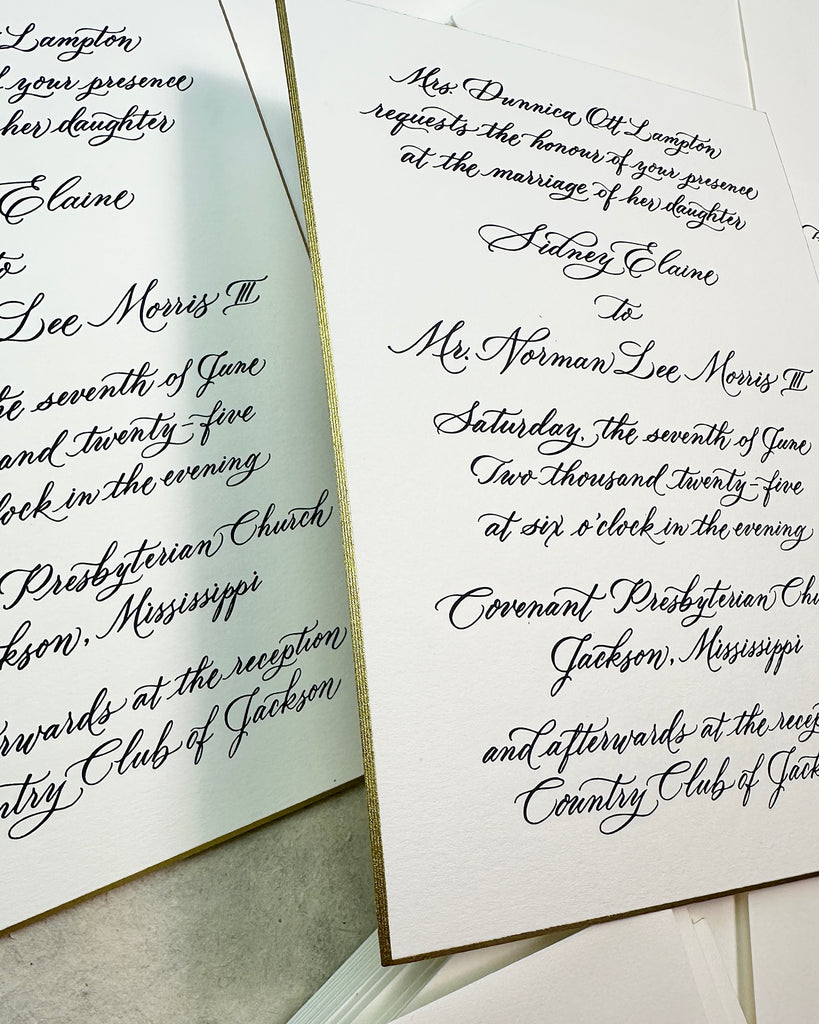 Lampton
your presence
her daughter
Elaine
to
Lee Morris III
the seventh of June
and twenty-five
o'clock in the evening
Presbyterian Church
Jackson, Mississippi
afterwards at the reception
Country Club of Jackson
Mrs. Dunnica Ott Lampton
requests the honour of your presence
at the marriage of her daughter
Sidney Elaine
to
Mr. Norman Lee Morris III
Saturday, the seventh of June
Two thousand twenty-five
at six o'clock in the evening
Covenant Presbyterian Chu
Jackson, Mississippi
and afterwards at the recep
Country Club of Jack